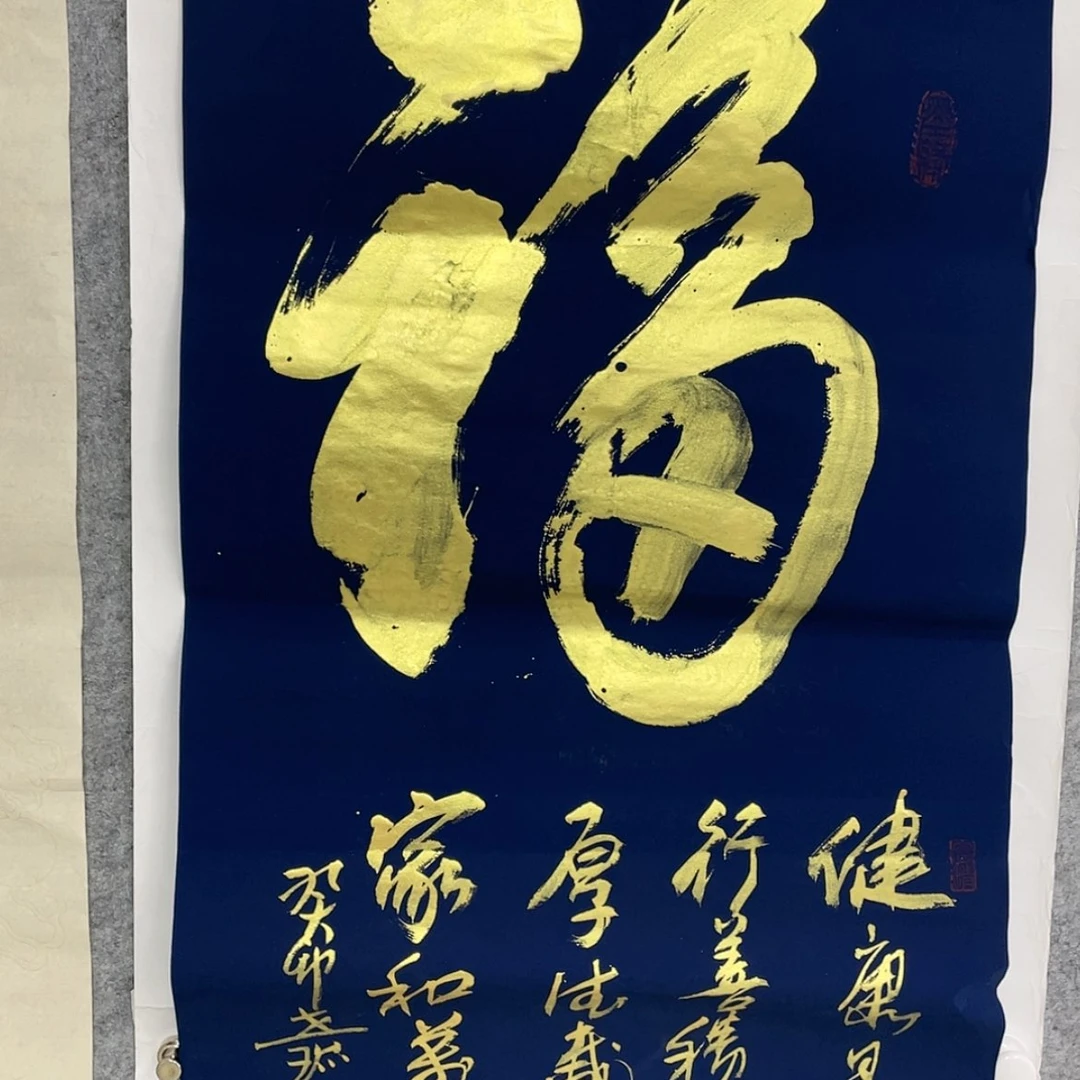 福
健康
行善積
厚德載
家和萬
癸卯